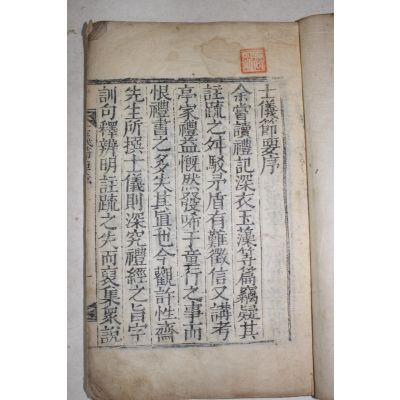 士儀節要序
余嘗讀禮記深衣玉藻等篇竊疑其
註疏之舛駁矛盾有難徵信又講考
亭家禮益慨然發喟于童行之事而
恨禮書之多失其眞也今觀許性齋
先生所撰士儀則深究禮經之旨字
訓句釋辨明註疏之失而裒集衆說